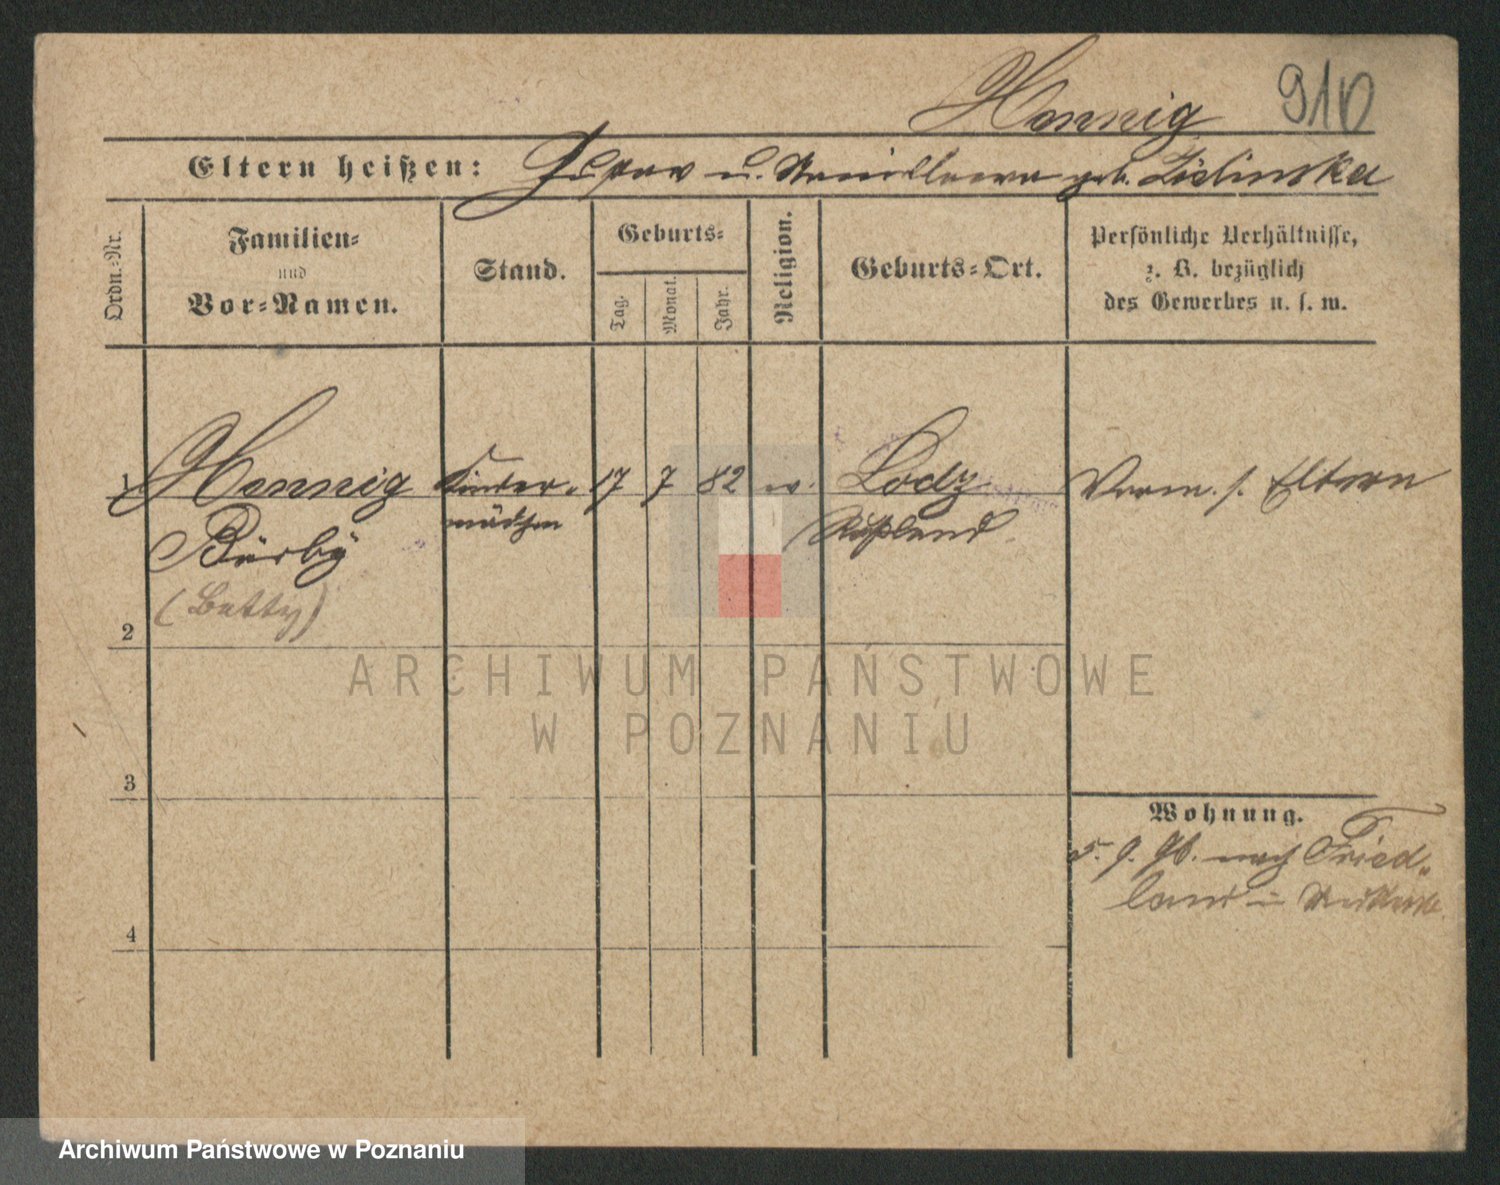 Hennig 910
Eltern heißen: Gustav u. geb. Zielinska
Ordn.-Nr.
Familien-
und
Vor-Namen.
Stand.
Geburts-
Tag.
Monat.
Jahr.
Religion.
Geburts-Ort.
Persönliche Verhältnisse,
z. B. bezüglich
des Gewerbes u. s. w.
1 Hennig Kinder- 17 7 82 ev. Lodz Verm. s. Eltern
mädchen Rußland
(Betty)
2
ARCHIWUM PAŃSTWOWE
W POZNANIU
3
Wohnung.
5. 9. 96. nach Fried-
land in
4
Archiwum Państwowe w Poznaniu